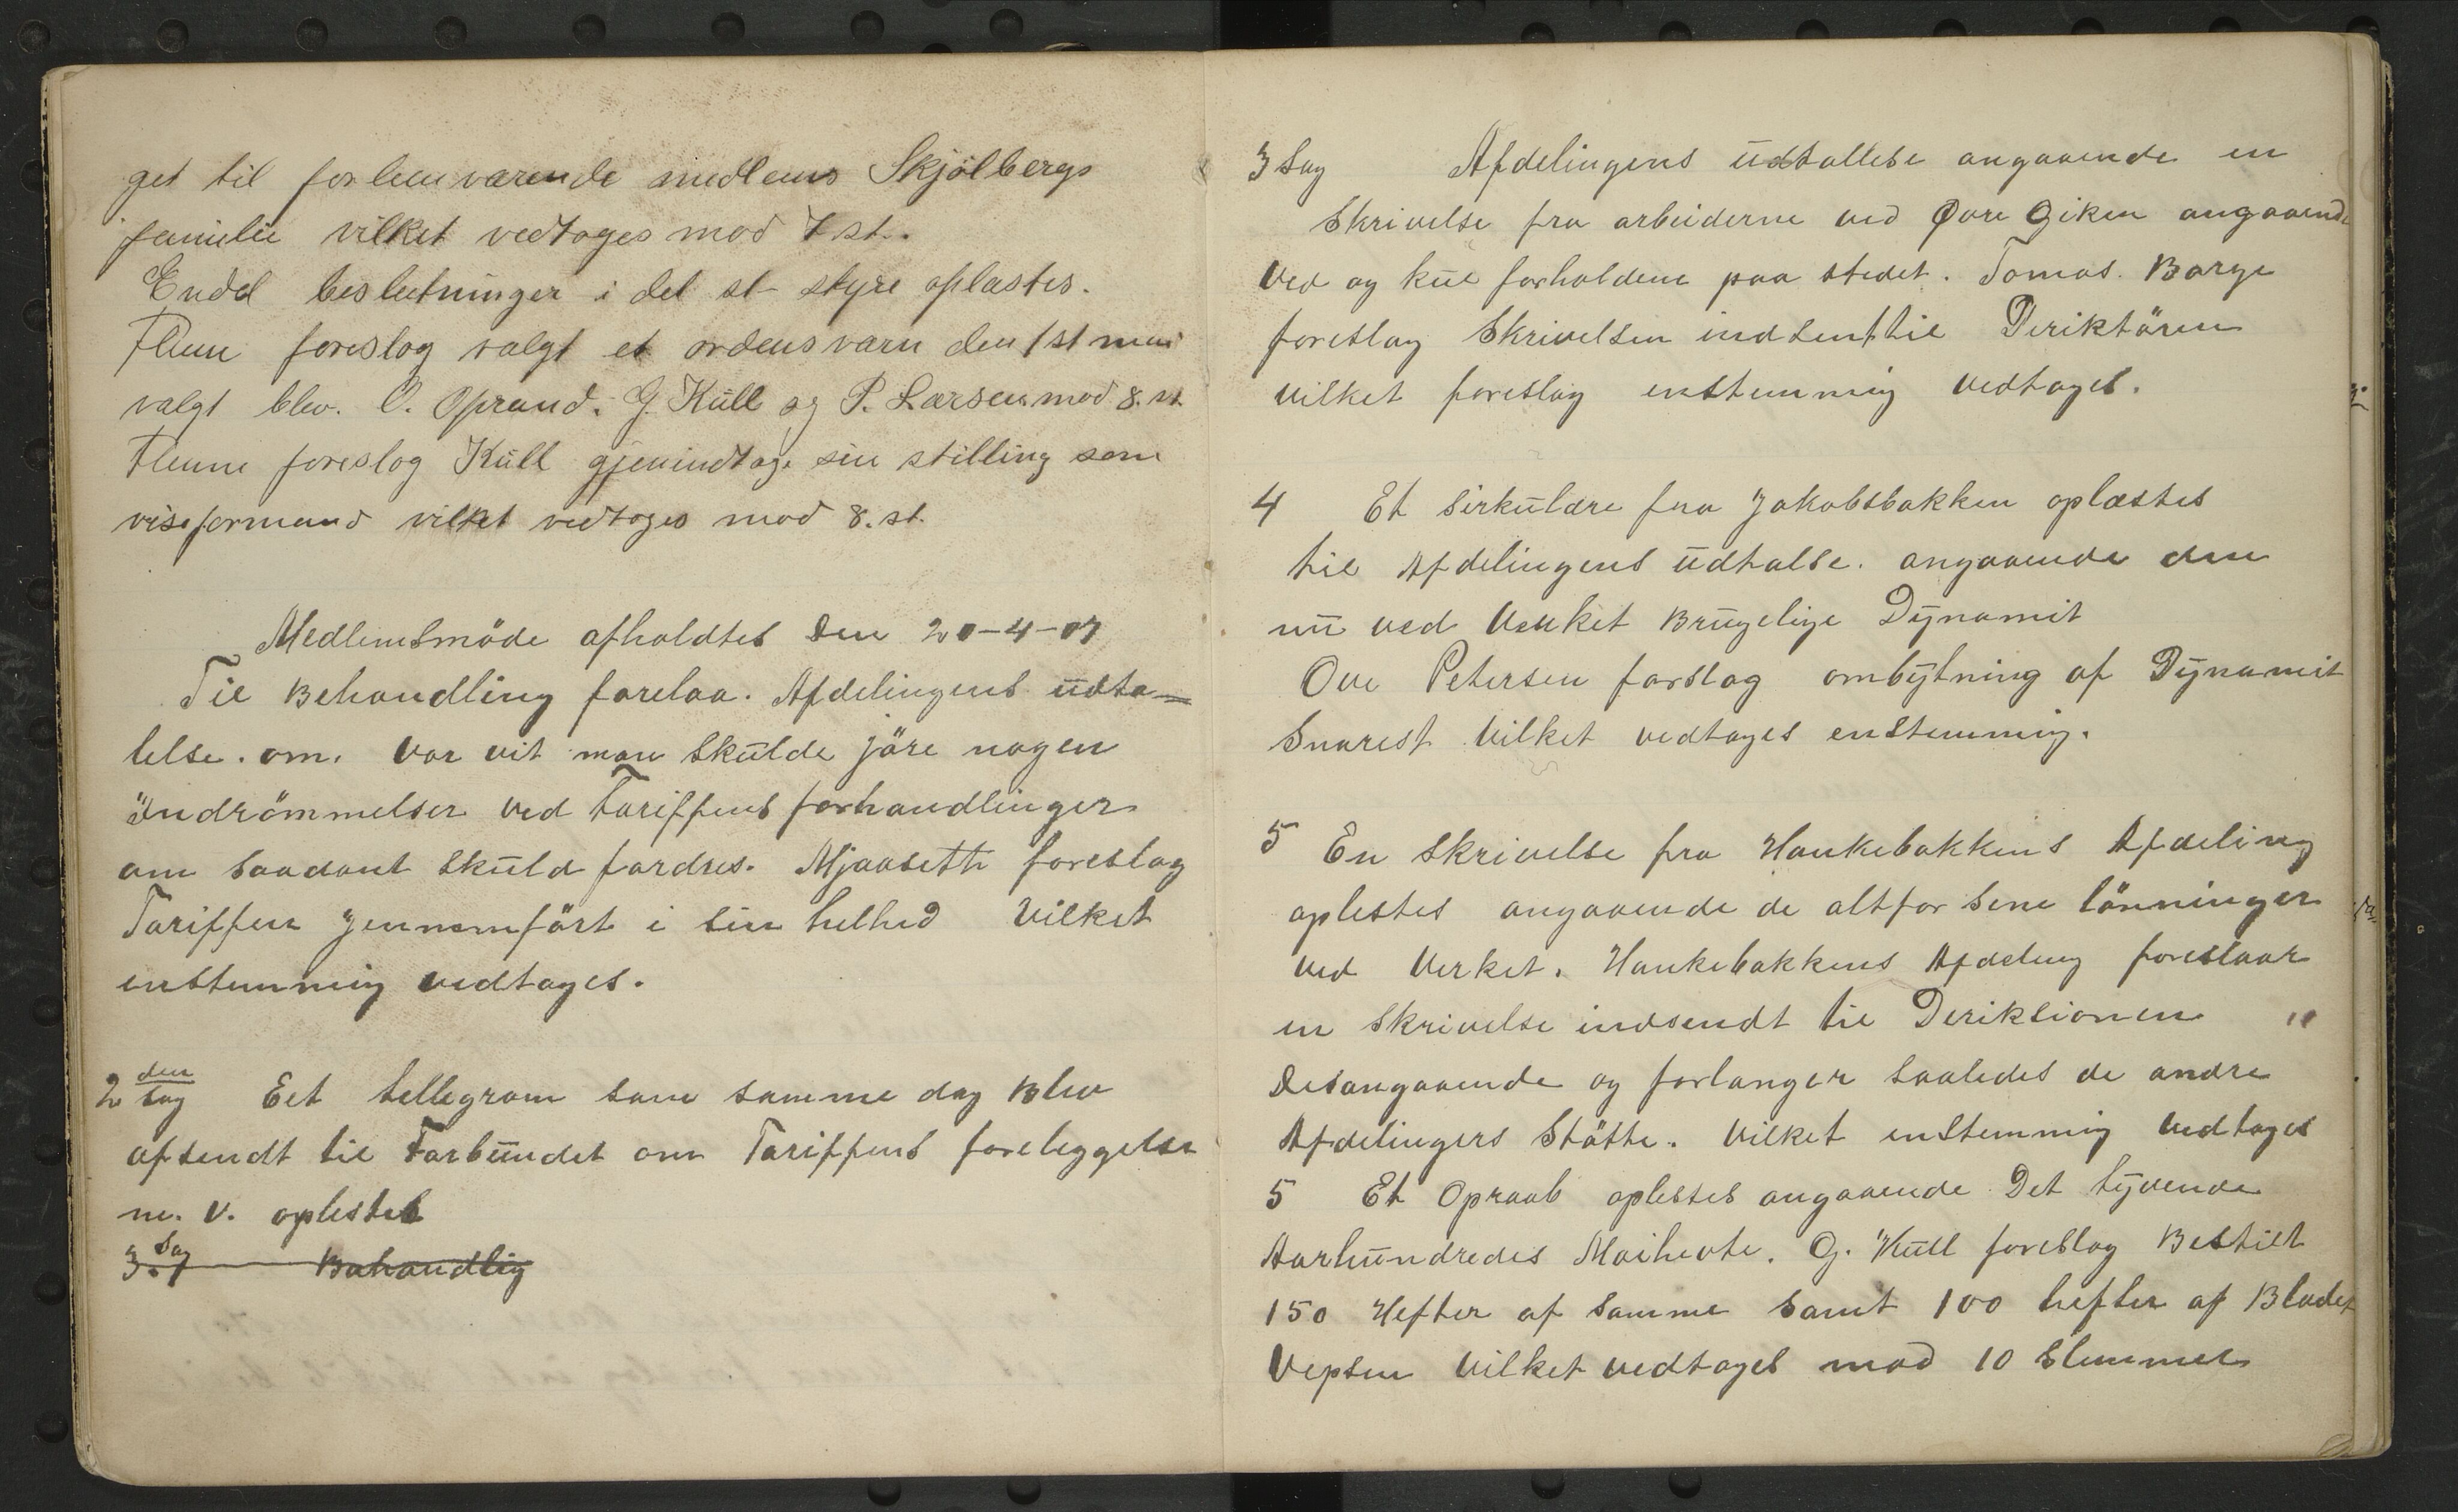 get til forhenværende medlems Skjölbergs
familie vilket vedtages mod 7 st.
Endel beslutninger i det st styre oplæstes.
Flenn foreslog valgt et ordensværn den 1st mai
valgt blev. O. Oprand. G. Küll og P. Larsen mod 8. st.
Flenn foreslog Küll gjenindtage sin stilling som
viseformand vilket vedtoges mod 8. st.
Medlemsmöde afholdtes Den 20-4-07
Til Behandling forelaa. Afdelingens üdta-
lelse. om. vor vit man skülde jöre nogen
indrömmelser ved Tariffens forhandlinger
om saadant sküld fordres. Mjaaseth foreslog
Tariffen jennemfört i sin helhed vilket
enstemmig vedtages.
2 den sag Eet tellegram som samme dag Blev
afsendt til Forbündet om Tariffens foreleggelse
m. v. oplestes
3. Sag Bahandlig
3 Sag Afdelingens üdtallelse angaaende en
Skrivelse fra arbeiderne ved Øvre Giken angaaende
ved og kül forholdene paa stedet. Tomas. Borge
foreslog Skrivelsen indsent til Deriktören
vilket foreslog enstemmig vedtages.
4 Et Sirkülære fra Jakobsbakken oplæstes
til Afdelingens üdtalse. angaaende den
nü ved Verket Brügelige Dynamit
Ove Petersen forslog ombytning af Dynamit
Snarest vilket vedtages enstemmig.
5 En skrivelse fra Hankebakkens Afdeling
oplestes angaaende de altfor sene lönninger
ved Verket. Hankebakkens Afdeling foreslaar
en Skrivelse indsendt til Deriksionen "
Desangaaende og forlanger saaledes de andre
Afdelingers Stötte. vilket enstemmig vedtages
5 Et Opraab oplestes angaaende Det tyvende
Aarhündredes Maihevte. G. Küll foreslog Bestilt
150 Hefter af samme samt 100 hefter af Bladet
Vepsen vilket vedtages mod 10 Stemmer